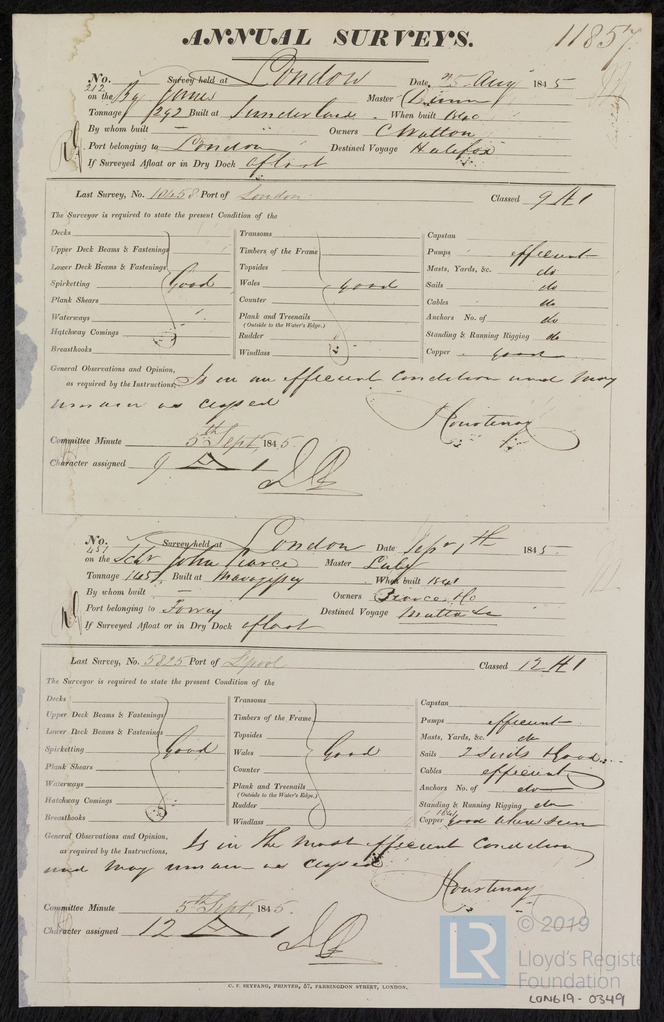 ANNUAL SURVEYS.
11857
No. 212 Survey held at London Date 25 Aug 1845
on the Bg Jane Master
Tonnage 292 Built at Sunderland When built
By whom built — Owners C Walton
Port belonging to London Destined Voyage Halifax
If Surveyed Afloat or in Dry Dock afloat
Last Survey, No. 10458 Port of London Classed 9 A 1
The Surveyor is required to state the present Condition of the
Decks
Upper Deck Beams & Fastenings
Lower Deck Beams & Fastenings
Spirketting Good
Plank Shears
Waterways
Hatchway Comings
Breasthooks
Transoms
Timbers of the Frame
Topsides
Wales good
Counter
Plank and Treenails
(Outside to the Water's Edge.)
Rudder
Windlass
Capstan
Pumps efficient
Masts, Yards, &c. do
Sails do
Cables do
Anchors No. of do
Standing & Running Rigging do
Copper good
General Observations and Opinion,
as required by the Instructions, Is in an efficient Condition and may
remain as classed
Courtenay
Committee Minute 5th Sept, 1845.
Character assigned 9 A 1
No. 451 Survey held at London Date Sepr 1th 1845
on the Schr John Pearce Master
Tonnage 145 Built at Mevagissey When built 1841
By whom built — Owners Pearce & Co
Port belonging to Fowey Destined Voyage Malta &c
If Surveyed Afloat or in Dry Dock afloat
Last Survey, No. 5825 Port of Lpool Classed 12 A 1
The Surveyor is required to state the present Condition of the
Decks
Upper Deck Beams & Fastenings
Lower Deck Beams & Fastenings
Spirketting Good
Plank Shears
Waterways
Hatchway Comings
Breasthooks
Transoms
Timbers of the Frame
Topsides
Wales Good
Counter
Plank and Treenails
(Outside to the Water's Edge.)
Rudder
Windlass
Capstan
Pumps efficient
Masts, Yards, &c. do
Sails 2 Suits Good
Cables efficient
Anchors No. of do
Standing & Running Rigging do
Copper good where seen
General Observations and Opinion,
as required by the Instructions, Is in the most efficient Condition
and may remain as classed
Courtenay
Committee Minute 5th Sept, 1845.
Character assigned 12 A 1
C. F. SEYFANG, PRINTER, 57, FARRINGDON STREET, LONDON.
LR © 2019
Lloyd's Register
Foundation
LON619-0349